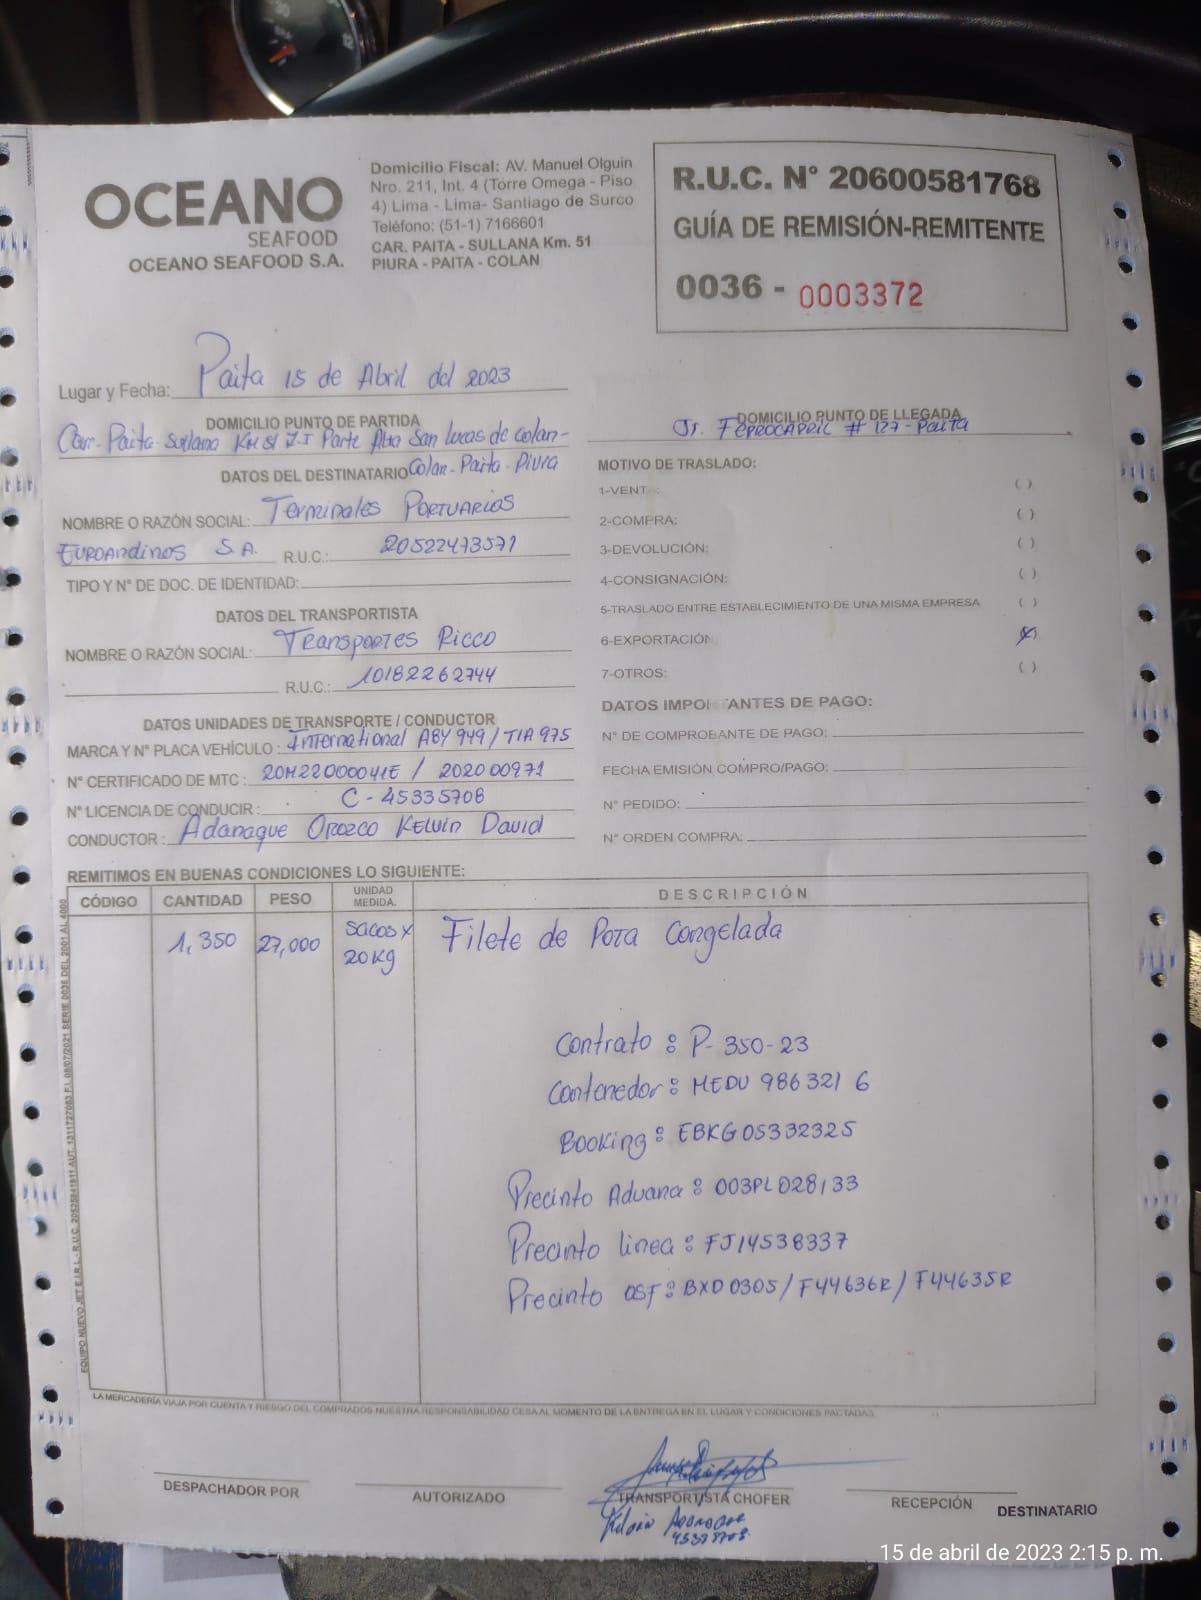 OCEANO
SEAFOOD
OCEANO SEAFOOD S.A.
Domicilio Fiscal: AV. Manuel Olguin
Nro. 211, Int. 4 (Torre Omega - Piso
4) Lima - Lima- Santiago de Surco
Teléfono: (51-1) 7166601
CAR. PAITA - SULLANA Km. 51
PIURA - PAITA - COLAN
R.U.C. N° 20600581768
GUÍA DE REMISIÓN-REMITENTE
0036 - 0003372
Lugar y Fecha: Paita 15 de Abril del 2023
DOMICILIO PUNTO DE PARTIDA
Carr. Paita-Sullana KM 51 Z.I Parte Alta San Lucas de Colan-
Colan-Paita-Piura
DOMICILIO PUNTO DE LLEGADA
Jr. Ferrocarril # 127 - Paita
DATOS DEL DESTINATARIO
NOMBRE O RAZÓN SOCIAL: Terminales Portuarios
Euroandinos S.A. R.U.C.: 20522473571
TIPO Y N° DE DOC. DE IDENTIDAD:
DATOS DEL TRANSPORTISTA
NOMBRE O RAZÓN SOCIAL: Transportes Ricco
R.U.C.: 10182262744
DATOS UNIDADES DE TRANSPORTE / CONDUCTOR
MARCA Y N° PLACA VEHÍCULO: International ABY 949 / TIA 975
N° CERTIFICADO DE MTC: 20M22000041E / 202000971
N° LICENCIA DE CONDUCIR: C - 45335708
CONDUCTOR: Adanaque Orozco Kelvin David
MOTIVO DE TRASLADO:
1-VENT :
( )
2-COMPRA:
( )
3-DEVOLUCIÓN:
( )
4-CONSIGNACIÓN:
( )
5-TRASLADO ENTRE ESTABLECIMIENTO DE UNA MISMA EMPRESA
( )
6-EXPORTACIÓN
(x)
7-OTROS:
( )
DATOS IMPORTANTES DE PAGO:
N° DE COMPROBANTE DE PAGO:
FECHA EMISIÓN COMPRO/PAGO:
N° PEDIDO:
N° ORDEN COMPRA:
REMITIMOS EN BUENAS CONDICIONES LO SIGUIENTE:
CÓDIGO CANTIDAD PESO UNIDAD MEDIDA. DESCRIPCIÓN
1,350 27,000 sacos x 20kg Filete de Pota Congelada
Contrato : P- 350-23
Contenedor : MEDU 986321 6
Booking : EBKG05332325
Precinto Aduana : 003PL028133
Precinto linea : FJ14538337
Precinto OSF : BXD0305 / F44636R / F44635R
EQUIPO NUEVO JET E.I.R.L - R.U.C. 20525841811 AUT. 1311727083 F.I. 08/07/2021 SERIE 0036 DEL 2001 AL 4000
LA MERCADERÍA VIAJA POR CUENTA Y RIESGO DEL COMPRADOS NUESTRA RESPONSABILIDAD CESA AL MOMENTO DE LA ENTREGA EN EL LUGAR Y CONDICIONES PACTADAS
DESPACHADOR POR
AUTORIZADO
TRANSPORTISTA CHOFER
RECEPCIÓN
DESTINATARIO
Kelvin
15 de abril de 2023 2:15 p. m.